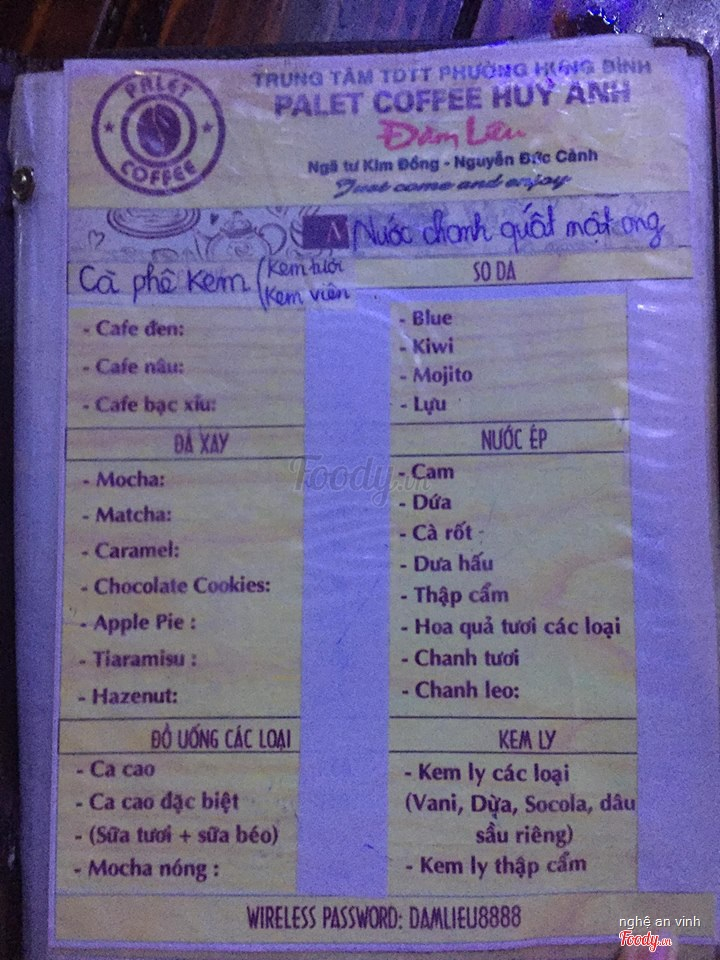 PALET
COFFEE
TRUNG TÂM TDTT PHƯỜNG HƯNG BÌNH
PALET COFFEE HUY ANH
Đàm Liêu
Ngã tư Kim Đồng - Nguyễn Đức Cảnh
Just come and enjoy
Nước chanh quất mật ong
Cà phê Kem (Kem tươi
(Kem viên
- Cafe đen:
- Cafe nâu:
- Cafe bạc xỉu:
ĐÁ XAY
- Mocha:
- Matcha:
- Caramel:
- Chocolate Cookies:
- Apple Pie :
- Tiaramisu :
- Hazenut:
ĐỒ UỐNG CÁC LOẠI
- Ca cao
- Ca cao đặc biệt
- (Sữa tươi + sữa béo)
- Mocha nóng :
SO DA
- Blue
- Kiwi
- Mojito
- Lựu
NƯỚC ÉP
- Cam
- Dứa
- Cà rốt
- Dưa hấu
- Thập cẩm
- Hoa quả tươi các loại
- Chanh tươi
- Chanh leo:
KEM LY
- Kem ly các loại
(Vani, Dừa, Socola, dâu
sầu riêng)
- Kem ly thập cẩm
WIRELESS PASSWORD: DAMLIEU8888
Foody.vn
nghệ an vinh
Foody.vn